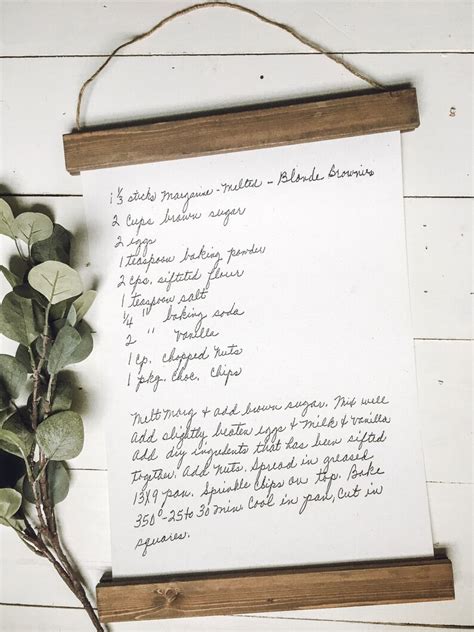 1 1/3 sticks Margarine - Melted - Blonde Brownies
2 Cups brown sugar
2 eggs
1 teaspoon baking powder
2 cps. sifteted flour
1 teaspoon salt
1/4 " baking soda
2 " Vanilla
1 cp. chopped Nuts
1 pkg. Choc. Chips
Melt Marg & add brown sugar. Mix well
Add slightly beaten eggs & Milk & Vanilla
Add dry ingredents that has been sifted
together. Add Nuts. Spread in greased
13x9 pan. Sprinkle Chips on top. Bake
350° - 25 to 30 min. Cool in pan, Cut in
squares.